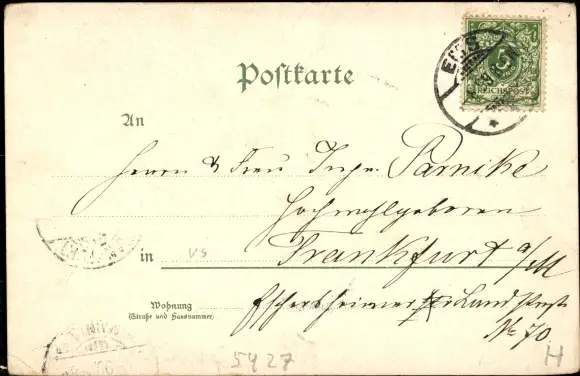 Postkarte
5
REICHSPOST
An
Herrn & Frau Ingr. Parnicke
Hochwohlgeboren
in Frankfurt a/M
Wohnung
(Straße und Hausnummer)
Eschersheimer Landstr.
No 70
5427
H